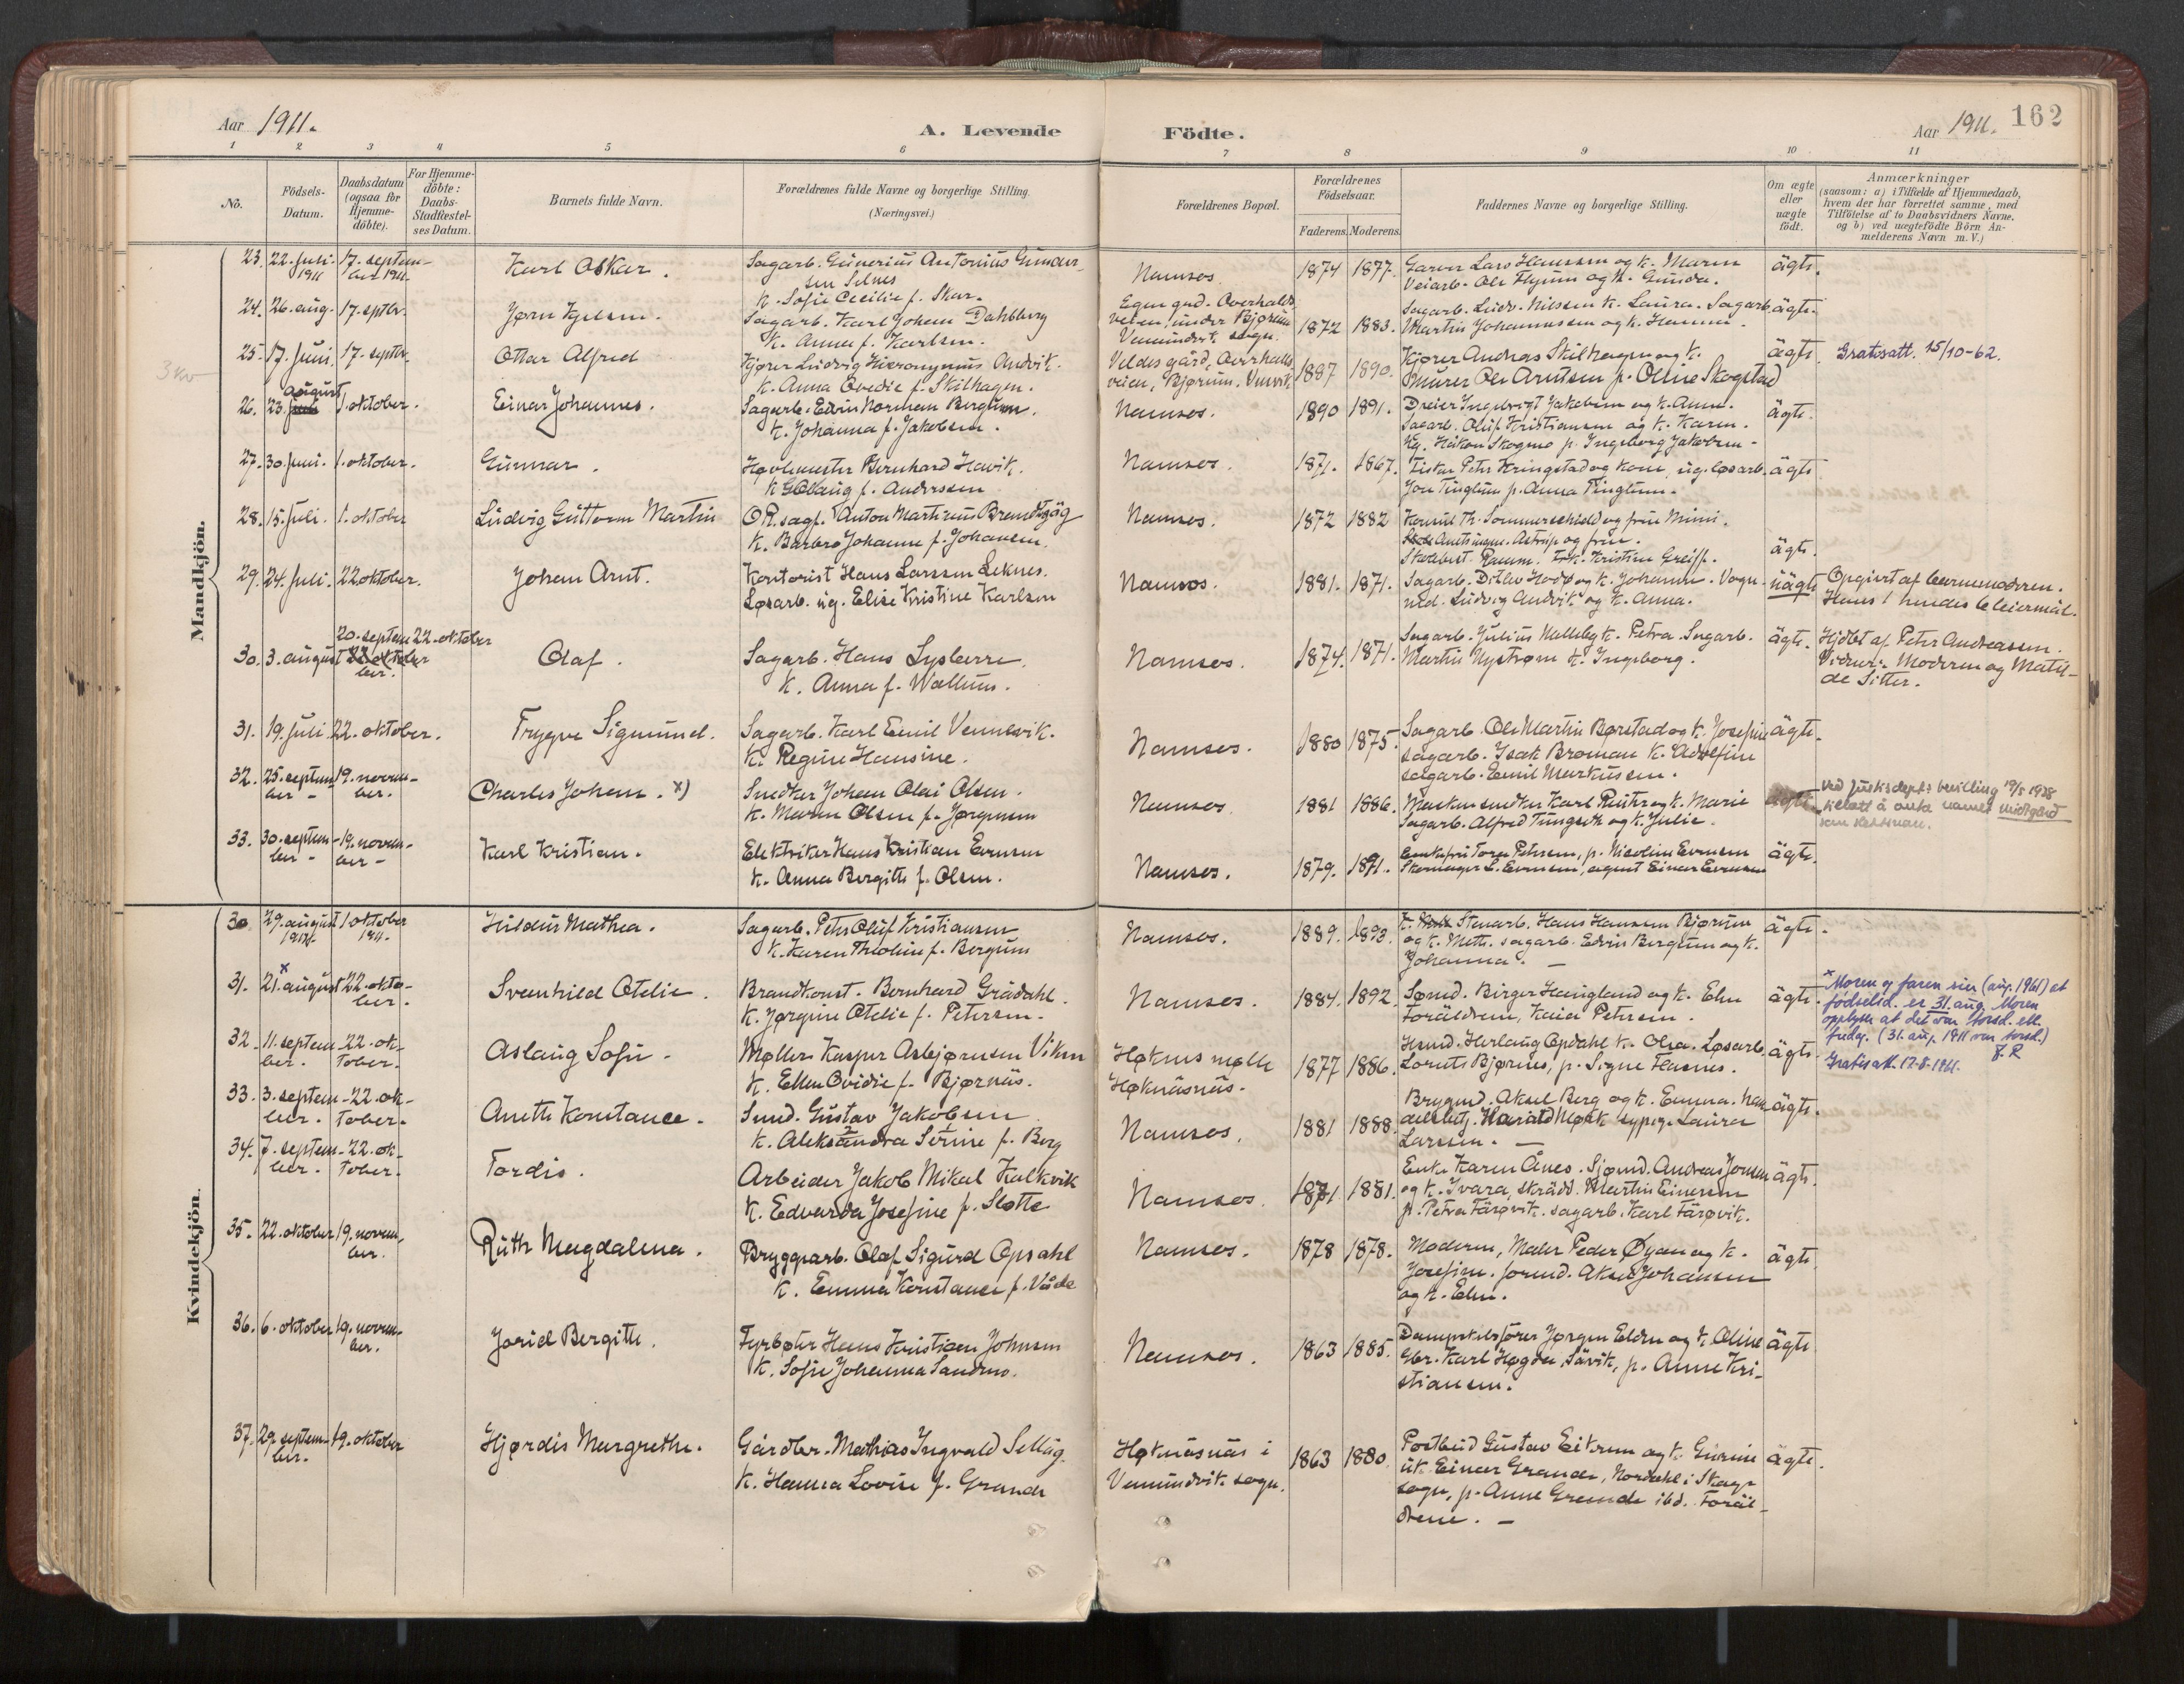 Aar 1911.
A. Levende Fødte.
Aar 1911. 162
1 2 3 4 5 6 7 8 9 10 11
No.
Födsels-Datum.
Daabsdatum (ogsaa for Hjemme-döbte).
For Hjemme-döbte: Daabs-Stadfæstel-ses Datum.
Barnets fulde Navn.
Forældrenes fulde Navne og borgerlige Stilling. (Næringsvei.)
Forældrenes Bopæl.
Forældrenes Födselsaar.
Faderens. Moderens.
Faddernes Navne og borgerlige Stilling.
Om ægte eller uægte født.
Anmærkninger
(saasom: a) i Tilfælde af Hjemmedaab,
hvem der har forrettet samme, med
Tilföielse af to Daabsvidners Navne.
og b) ved uægtefödte Börn An-
melderens Navn m. V.)
Mandkjön.
23. 22. juli 1911 17. septem-ber 1911. Karl Oskar. Sagarb. Gunerius Antonius Gunder-
sen Selnes
K. Sofie Cecilie f. Skar. Namsos 1874 1877. Garver Lars Hanssen og k. Maren
Veiarb. Ole Flijum og k. Gunda. ägte.
24. 26. aug. 17. septbr. Jørn Kjelsen. Sagarb. Karl Johan Dahlberg
K. Anna f. Karlsen. Egen grd. Overhalds
veien, under Bjørum
Vemundvik sogn. 1872 1883. Sagarb. Ludv. Nilssen k. Laura. Sagarb.
Martin Johannessen og k. Hanna. ägte.
25. 17. juni. 17. septbr. Ottar Alfred Kjører Ludvig Hieronymus Andvik.
K. Anna Ovedie f. Skilhagen. Veldes gård, Overhalls
veien, Bjørum. Vemvik 1887 1890. Kjører Andreas Skilhagen og k.
Murer Ole Arntsen p. Oline Skogstad ägte. Gratisatt. 15/10-62.
3 kv
26. 23. august 1. oktober. Einar Johannes. Sagarb. Edvin Norman Bergum.
K. Johanna f. Jakobsen. Namsos. 1890 1891. Dreier Ingebrigt Jakobsen og k. Anna.
Sagarb. Oluf Kristiansen og k. Karen.
Ug. Håkon Skogmo p. Ingeborg Jakobsen. ägte.
27. 30. juni. 1. oktober. Gunnar. Høvlmester Bernhard Havik.
K Olaug f. Anderssen Namsos. 1871. 1867. Fisker Peter Kringstad og kone, ug. løsarb.
Jon Tinglum p. Anna Tinglum. ägte
28. 15. juli. 1. oktober Ludvig Guttorm Martin O.R. sagf. Anton Martinus Bremdtgåg
K. Barbro Johanne f. Johansen. Namsos. 1872 1882 Konsul Th. Sommerschield og frue Mimi.
Amtsingen. Astrup og frue.
Kristine Greiff. ägte.
29. 24. juli. 22 oktober. Johan Arnt. Kontorist Hans Larssen Leknes.
Løsarb. ug. Elise Kristine Karlsen Namsos. 1881. 1871. Sagarb. Ditlev Hodø og k. Johanna. Vogn-
md. Ludvig Andvik og k. Anna. uägte Opgivet af barnemoderen.
Hans 1 hendes 6 leiermål.
30. 3. august 20. septem-ber. 22. oktober Olaf. Sagarb. Hans Lysberre.
K. Anna f. Wallum. Namsos. 1874. 1871. Sagarb. Julius k. Petra. Sagarb.
Martin Nystrøm k. Ingeborg. ägte. Hjdbt af Peter Andreassen.
Vidner: Moderen og Matil-
de Sitter.
31. 19. juli 22. oktober. Trygve Sigmund. Sagarb. Karl Emil Vennevik.
K. Regine Hansine. Namsos. 1880 1875. Sagarb. Ole Martin Børstad og k. Josefine
sagarb. Isak Broman k. Adolfine
sagarb. Emil Markussen. ägte.
32. 25. septem-ber - 19. novem-ber. Charles Johan. x) Snedker Johan Olai Olsen.
K. Maren Olsen f. Jørgensen Namsos. 1881 1886. Karl og k. Marie
Sagarb. Alfred Tungseth og k. Julie. ägte. Ved Justisdepts bevilling 19/5 1928
tillatt å anta navnet Midtgård
som slektsnavn.
33. 30. septem-ber - 19. novem-ber - Karl Kristian. Elektriker Hans Kristian Evensen
K. Anna Bergitte f. Olsen. Namsos. 1879. 1871. Enkefru Tora Petersen, p. Nicoline Evensen
Skomager L. Evensen, agent Einar Evensen ägte.
Kvindekjön.
30 29. august 1911. 1 oktober 1911. Huldur Mathea. Sagarb. Peter Oluf Kristiansen
K. Karen Theoline f. Bergum Namsos. 1889. 1893. Stenarb. Hans Hansen Bjørum
og k. Meth. sagarb. Edvin Bergum og k.
Johanna. - ägte.
31. 21. x august 22. okto-ber. Svanhild Otelie. Brandkonst. Bernhard Grådahl.
K. Jørgine Otelie f. Petersen. Namsos. 1884. 1892. Sømd. Birger Haugland og k. Elen
Foräldrene, Kaia Petersen. ägte. x Moren og faren sier (aug. 1961) at
fødselsd. er 31. aug. Moren
opplyste at det var torsd. ell.
fredag. (31. aug. 1911 var torsd.)
F.R
Gratisatt. 17-8-1961.
32. 11. septem-ber. 22. ok-tober. Aslaug Sofie. Møller Kaspar Asbjørnsen Viken
K. Ellen Ovidie f. Bjørnäs. Høknes mølle
Høknäsnäs. 1877 1886. Herlaug Opdahl k. Olea. Løsarb.
Lorents Bjørnes, p. Signe Flasnes. ägte.
33. 3. septem-ber. 22. ok-tober. Anette Konstance. Smed. Gustav Jakobsen
K. Aleksandra Serine f. Berg Namsos. 1881 1888. Aksel Berg og k. Emma. Han-
delsbetj. Harald Mørk sypige Laura
Larssen. - ägte.
34. 7. septem-ber. 22. ok-tober. Tordis. Arbeider Jakob Mikal Kalkvik
K. Edvarda Josefine f. Slotte Namsos. 1871 1881. Enke Karen Ånes. Sjømd. Andreas Jonsen
og k. Ivara, skrädd. Martin Einersen
p. Petra Färøvik. sagarb. Karl Färøvik. ägte.
35. 22. oktober 19. novem-ber. Ruth Magdalena. Bryggarb. Olaf Sigurd Opsahl
K. Emma Konstance f. Våde Namsos. 1878 1878. Moderen, Maler Peder Øyan og k.
Josefine. formd. Aksel Johansen
og k. Elen. ägte.
36. 6. oktober 19. novem-ber. Jorid Bergitte. Fyrbøter Hans Kristian Johnsen
K. Sofie Johanna Sandmo. Namsos. 1863 1885. Dampskibsfører Jørgen Elden og k. Oline
Gbr. Karl Høgda, Sävik, p. Anne Kri-
stiansen. ägte
37. 29. septem-ber. 19. oktober Hjørdis Margrethe. Gårdbr. Mathias Ingvald Selläg.
K. Hanna Lovise f. Grande Høknäsnäs i
Vemundvik sogn. 1863 1880. Postbud Gustav Eitrem og k. Gurine
uk. Einar Grande, Nordahl i Skage
sogn, p. Anne Grande ibd. Foräl-
drene. - ägte.